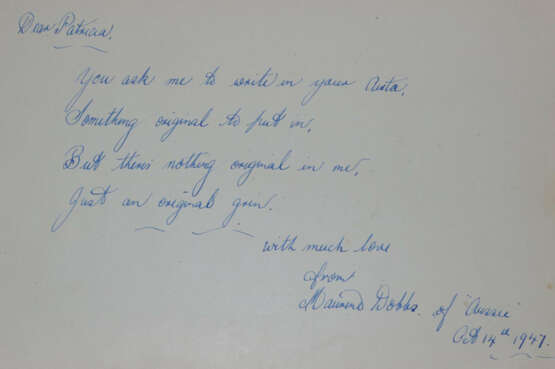 Dear Patricia.
You ask me to write in your Auto,
Something original to put in,
But theirs nothing original in me,
Just an original grin.
with much love
from
Dobbs. of "Aussie"
Oct 14th 1947.